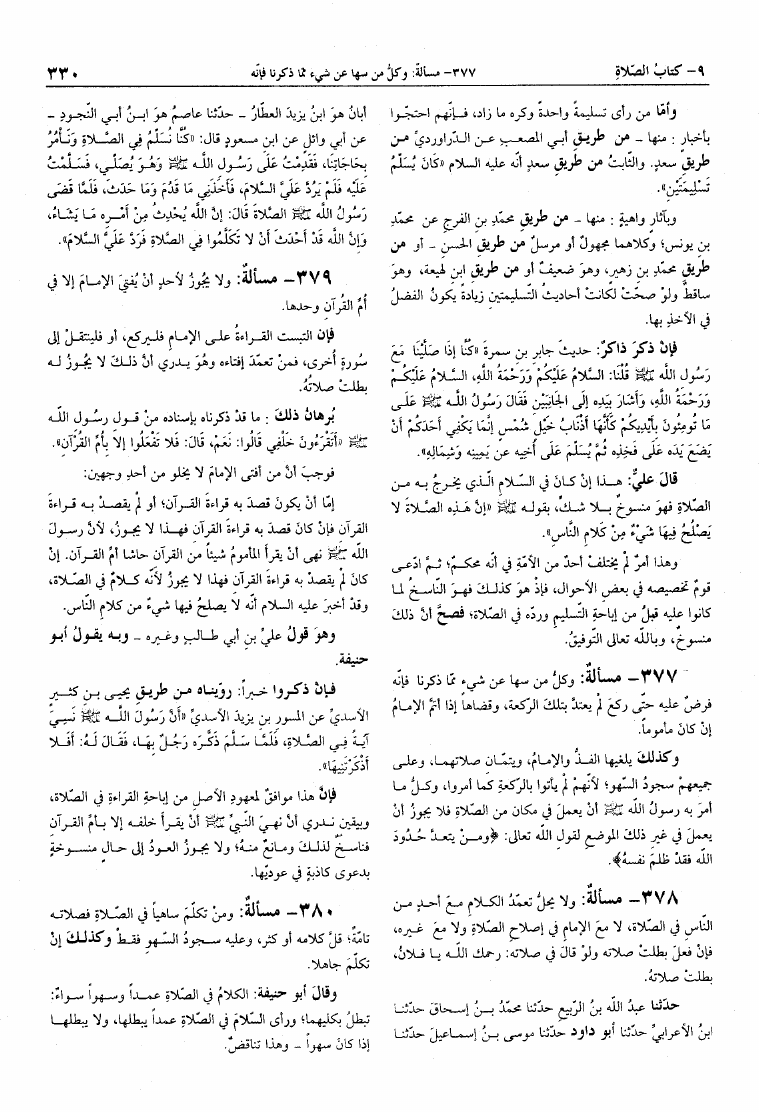 ٩- كتابُ الصّلاةِ
٣٧٧- مسألةٌ: وكلُّ من سها عن شيء مّما ذكرنا فإنّه
٣٣٠
وأمّا من رأى تسليمةً واحدةً وكره ما زاد، فـإنّهم احتجّـوا
بأخبارٍ : منها - من طريقِ أبـي المصعـبِ عـن الـدّراورديّ مـن
طريقِ سعدٍ. والثّابتُ من طريقِ سعدٍ أنّه عليه السلام «كَانَ يُسَلِّمُ
تَسْلِيمَتَيْنِ».
وبآثارٍ واهيةٍ : منها - من طريقِ محمّدِ بنِ الفرجِ عن محمّدِ
بنِ يونس؛ وكلاهما مجهولٌ أو مرسلٌ من طريقِ الحسنِ - أو من
طريقِ محمّدِ بنِ زهيرٍ، وهوَ ضعيفٌ أو من طريقِ ابنِ لهيعة، وهوَ
ساقطٌ ولوْ صحّتْ لكانتْ أحاديثُ التّسليمتينِ زيادةً يكونُ الفضلُ
في الأخذِ بها.
فإنْ ذكرَ ذاكرٌ: حديثَ جابرِ بنِ سمرة «كُنَّا إذَا صَلَّيْنَا مَعَ
رَسُولِ اللهِ ﷺ قُلْنَا: السَّلامُ عَلَيْكُمْ وَرَحْمَةُ اللهِ، السَّلامُ عَلَيْكُمْ
وَرَحْمَةُ اللهِ، وَأَشَارَ بِيَدِهِ إلَى الجَانِبَيْنِ فَقَالَ رَسُولُ اللهِ ﷺ عَلَى
مَا تُومِئُونَ بِأَيْدِيكُمْ كَأَنَّهَا أَذْنَابُ خَيْلٍ شُمْسٍ إنَّمَا يَكْفِي أَحَدَكُمْ أَنْ
يَضَعَ يَدَهُ عَلَى فَخِذِهِ ثُمَّ يُسَلِّمَ عَلَى أَخِيهِ عَنْ يَمِينِهِ وَشِمَالِهِ».
قالَ عليٌّ: هـذا إنْ كـانَ في السّـلامِ الّـذي يخـرجُ بـه مـن
الصّلاةِ فهوَ منسوخٌ بـلا شـكّ، بقولـه ﷺ «إنَّ هَـذِهِ الصَّـلاةَ لا
يَصْلُحُ فِيهَا شَيْءٌ مِنْ كَلامِ النَّاسِ».
وهذا أمرٌ لمْ يختلفْ أحدٌ من الأمّةِ في أنّه محكـمٌ؛ ثـمَّ ادّعـى
قومٌ تخصيصه في بعضِ الأحوال، فإذْ هوَ كذلـكَ فهـوَ النّاسـخُ لمـا
كانوا عليه قبلُ من إباحةِ التّسليمِ وردّه في الصّلاة؛ فصحَّ أنَّ ذلكَ
منسوخٌ، وباللّه تعالى التّوفيقُ.
٣٧٧- مسألةٌ: وكلُّ من سها عن شيءٍ ممّا ذكرنا فإنّه
فرضٌ عليه حتّى ركعَ لمْ يعتدَّ بتلكَ الرّكعة، وقضاها إذا أتمَّ الإمامُ
إنْ كانَ مأموماً.
وكذلكَ يلغيها الفذُّ والإمامُ، ويتمّـان صلاتهمـا، وعلـى
جميعهمْ سجودُ السّهو؛ لأنّهمْ لمْ يأتوا بالرّكعةِ كما أمروا، وكـلُّ مـا
أمرَ به رسولُ اللّه ﷺ أنْ يعملَ في مكانٍ من الصّلاةِ فلا يجوزُ أنْ
يعملَ في غيرِ ذلكَ الموضعِ لقولِ اللّه تعالى: ﴿ومـنْ يتعـدَّ حُـدُودَ
اللّه فقدْ ظلمَ نفسهُ﴾.
٣٧٨- مسألةٌ: ولا يحلُّ تعمّدُ الكـلامِ مـعَ أحـدٍ مـن
النّاسِ في الصّلاة، لا معَ الإمامِ في إصلاحِ الصّلاةِ ولا معَ غيره،
فإنْ فعلَ بطلتْ صلاته ولوْ قالَ في صلاته: رحمكَ اللّـه يـا فـلانُ،
بطلتْ صلاتهُ.
حدّثنا عبدُ الله بنُ الرّبيعِ حدّثنا محمّدُ بـنُ إسـحاقَ حدّثنـا
ابنُ الأعرابيِّ حدّثنا أبو داود حدّثنا موسى بنُ إسـماعيلَ حدّثنـا
أبانُ هوَ ابنُ يزيدَ العطّارُ - حدّثنا عاصمٌ هوَ ابـنُ أبـي النّجـودِ -
عن أبي وائلٍ عن ابنِ مسعودٍ قالَ: «كُنَّا نُسَلِّمُ فِي الصَّـلاةِ وَنَـأْمُرُ
بِحَاجَاتِنَا، فَقَدِمْتُ عَلَى رَسُولِ اللَّهِ ﷺ وَهُوَ يُصَلِّي، فَسَلَّمْتُ
عَلَيْهِ فَلَمْ يَرُدَّ عَلَيَّ السَّلامَ، فَأَخَذَنِي مَا قَدُمَ وَمَا حَدَثَ، فَلَمَّا قَضَى
رَسُولُ اللهِ ﷺ الصَّلاةَ قَالَ: إنَّ اللهَ يُحْدِثُ مِنْ أَمْـرِهِ مَـا يَشَـاءُ،
وَإِنَّ اللهَ قَدْ أَحْدَثَ أَنْ لا تَكَلَّمُوا فِي الصَّلاةِ فَرَدَّ عَلَيَّ السَّلامَ».
٣٧٩- مسألةٌ: ولا يجُوزُ لأحدٍ أنْ يُفتيَ الإمـامَ إلا في
أُمِّ القُرآنِ وحدها.
فإن التبست القـراءةُ علـى الإمـامِ فليركع، أو فلينتقـلْ إلى
سُورةٍ أُخرى، فمنْ تعمّدَ إفتاءه وهُوَ يـدري أنَّ ذلـكَ لا يجُـوزُ لـه
بطلتْ صلاتُهُ.
بُرهانُ ذلكَ : ما قدْ ذكرناه بإسناده منْ قـول رسُـولِ اللّـه
ﷺ «أَتَقْرَءُونَ خَلْفِي قَالُوا: نَعَمْ، قَالَ: فَلا تَفْعَلُوا إلا بِأُمِّ القُرْآنِ».
فوجبَ أنَّ من أفتى الإمامَ لا يخلو من أحدِ وجهين:
إمّا أنْ يكونَ قصدَ به قراءةَ القرآن؛ أو لمْ يقصـدْ بـه قـراءةَ
القرآنِ فإنْ كانَ قصدَ به قراءةَ القرآنِ فهـذا لا يجـوزُ، لأنَّ رسـولَ
اللّه ﷺ نهى أنْ يقرأَ المأمومُ شيئاً من القرآنِ حاشا أمَّ القـرآنِ. إنْ
كانَ لمْ يقصدْ به قراءةَ القرآنِ فهذا لا يجوزُ لأنّه كـلامٌ في الصّلاة،
وقدْ أخبرَ عليه السلام أنّه لا يصلحُ فيها شيءٌ من كلامِ النّاس.
وهوَ قولُ عليِّ بنِ أبي طـالبٍ وغـيره - وبـه يقـولُ أبـو
حنيفة.
فـإنْ ذكـروا خـبراً: روّينـاه مـن طريـقِ يحيـى بـنِ كثـيرٍ
الأسديِّ عن المسورِ بنِ يزيدَ الأسديِّ «أَنَّ رَسُولَ اللَّـهِ ﷺ نَسِـيَ
آيَةً فِـي الصَّـلاةِ، فَلَمَّـا سَلَّمَ ذَكَّـرَهُ رَجُـلٌ بِهَـا، فَقَـالَ لَـهُ: أَفَـلا
أَذْكَرْتَنِيهَا».
فإنَّ هذا موافقٌ لمعهودِ الأصلِ من إباحةِ القراءةِ في الصّلاة،
وبيقينٍ نـدري أنَّ نهـيَ النّبيِّ ﷺ أنْ يقـرأَ خلفـه إلا بـأمِّ القـرآنِ
فناسـخٌ لذلـكَ ومـانعٌ منـهُ؛ ولا يجـوزُ العـودُ إلى حـالٍ منسـوخةٍ
بدعوى كاذبةٍ في عودتها.
٣٨٠- مسـألةٌ: ومنْ تكلّمَ ساهياً في الصّلاةِ فصلاتـه
تامّةٌ؛ قلَّ كلامه أو كثر، وعليه سـجودُ السّـهوِ فقـطْ وكذلـكَ إنْ
تكلّمَ جاهلا.
وقالَ أبو حنيفة: الكلامُ في الصّلاةِ عمـداً وسـهواً سـواءٌ:
تبطلُ بكليهما؛ ورأى السّلامَ في الصّلاةِ عمداً يبطلها، ولا يبطلهـا
إذا كانَ سهواً - وهذا تناقضٌ.